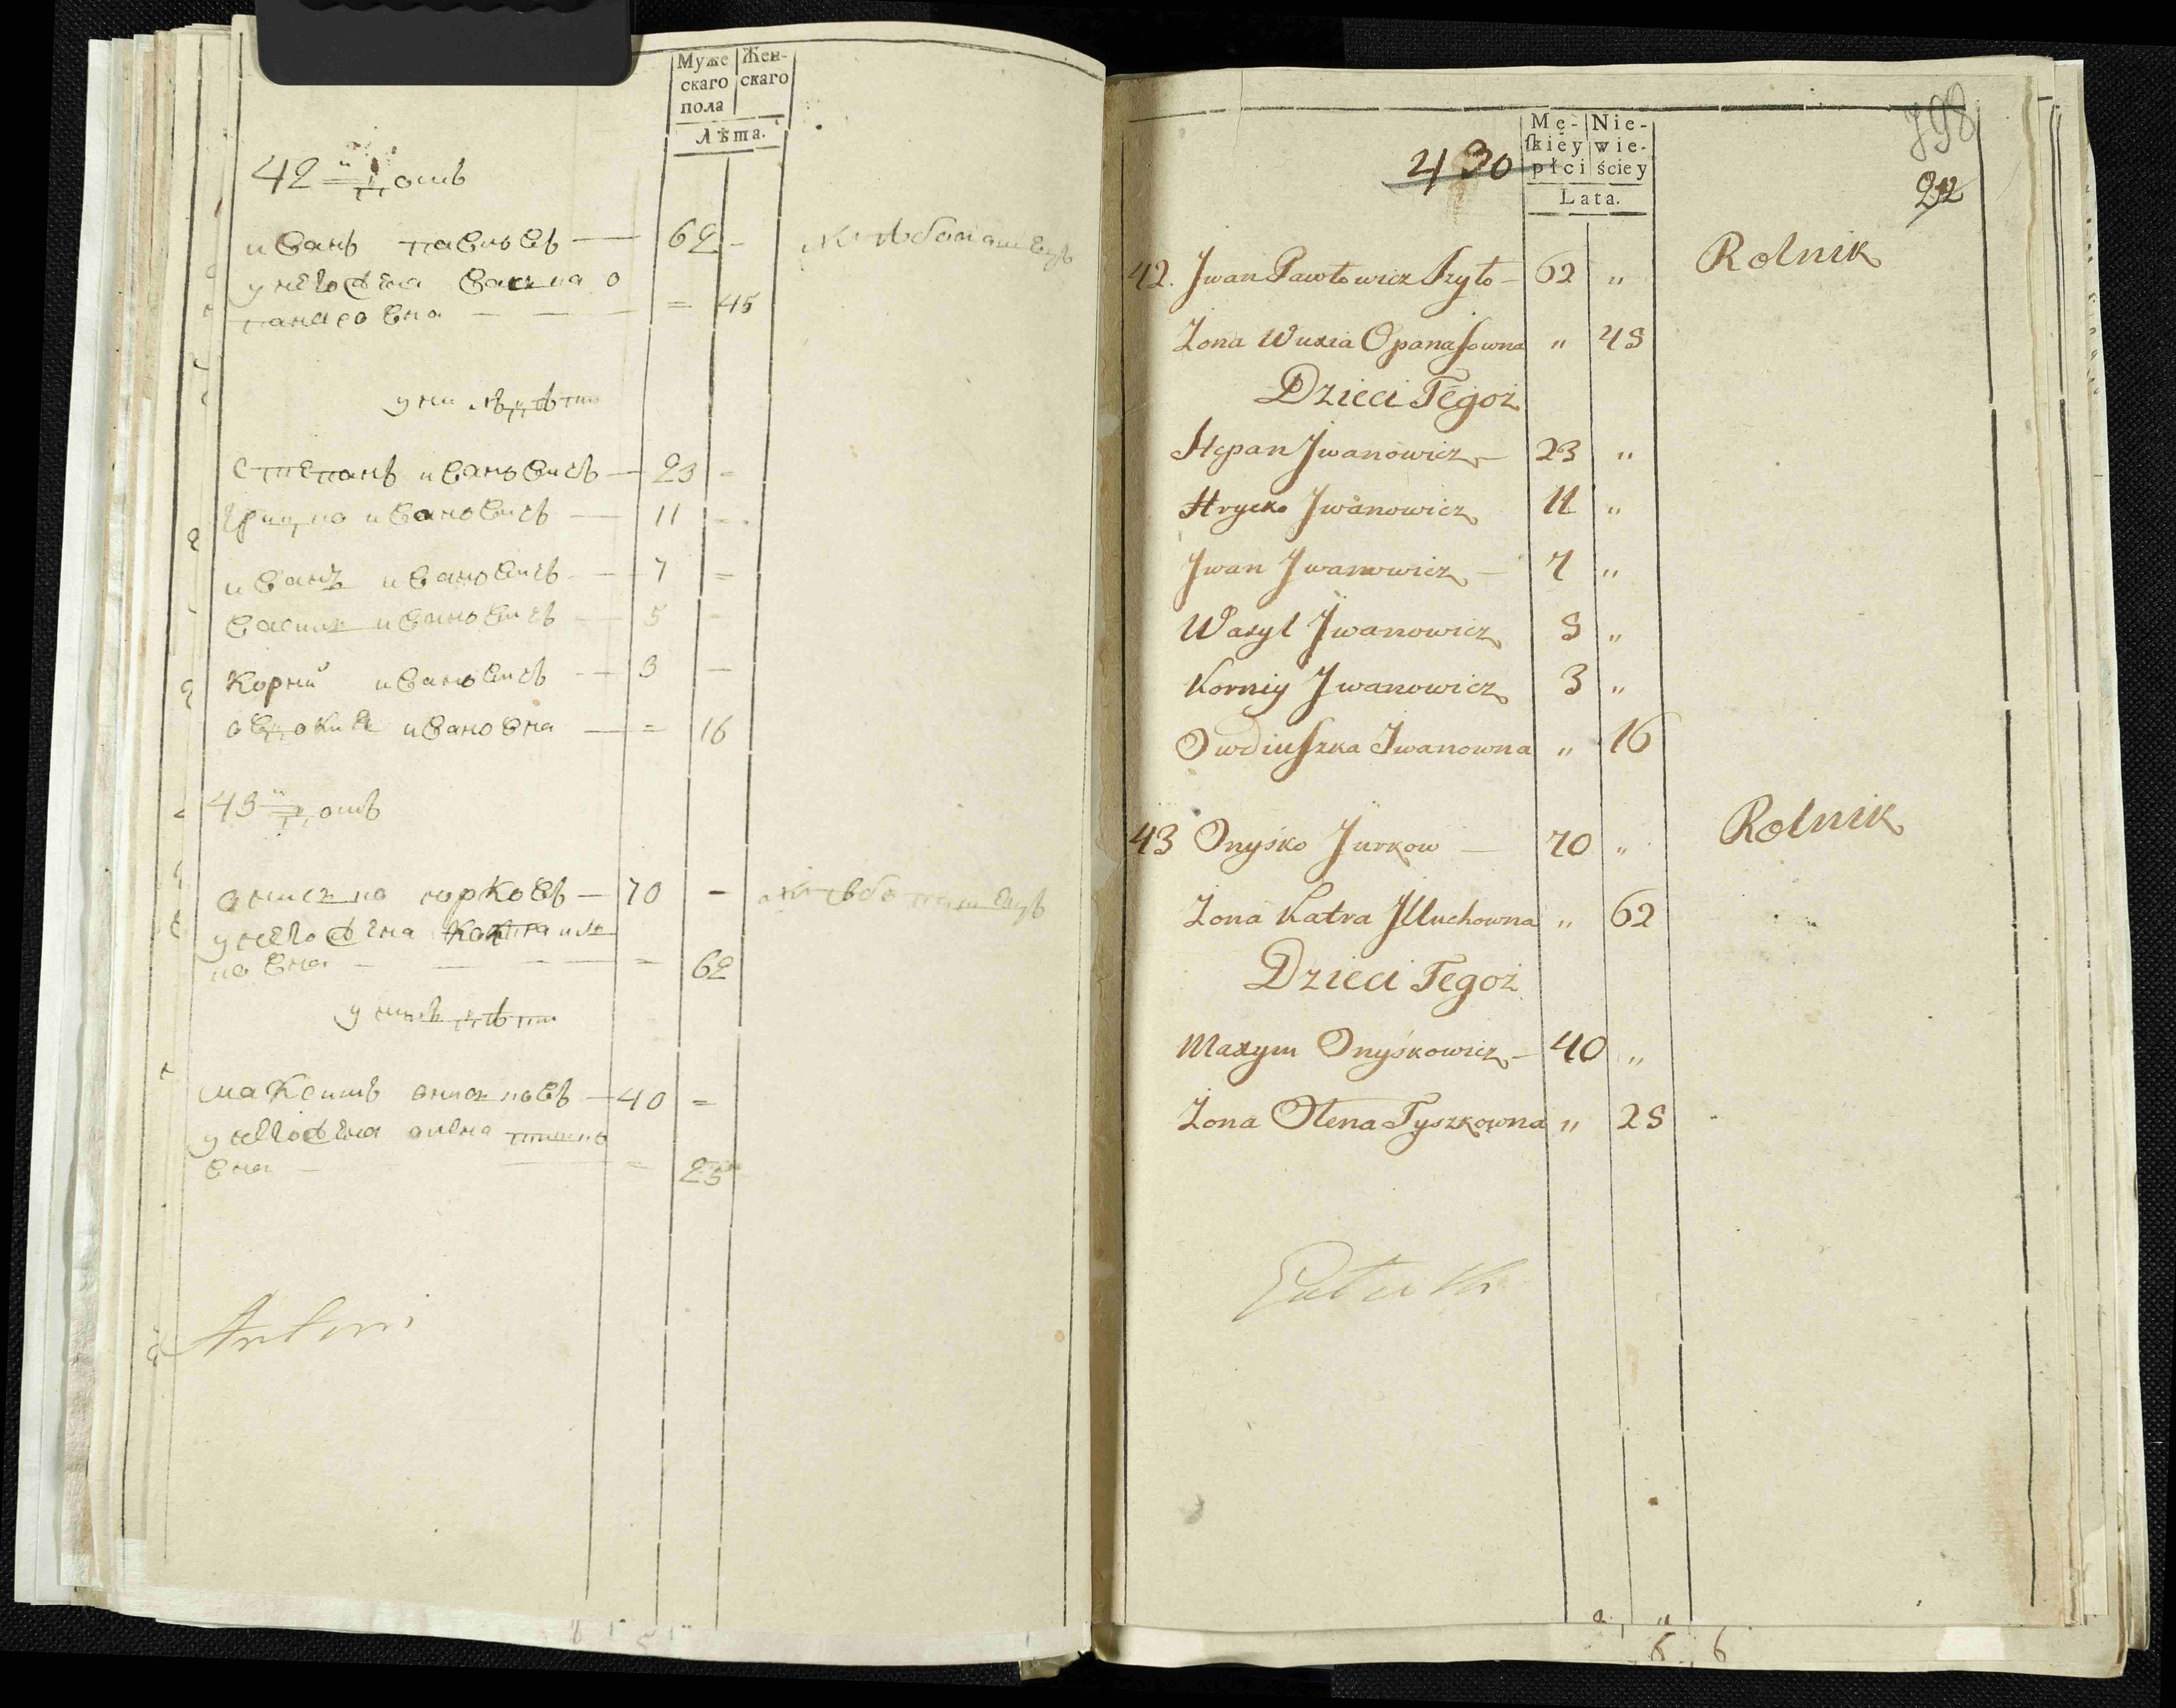 Муже
скаго
пола
Жен-
скаго
Лѣта.
42 й домъ
иванъ павловъ — 62 -
у него жена васка о
панасовна — = 45
у ни хъ дѣти
степанъ ивановичъ — 23 =
грицко ивановичъ — 11 =
иванъ ивановичъ — 7 =
василь ивановичъ — 5 -
Корний ивановичъ — 3 —
овдокия ивановна — = 16
43 й домъ
ониско юрковъ — 70 -
у него жена Катра ил
ковна — = 62
у нихъ дѣти
маКсимъ онисковъ — 40 =
у него жена олена тишко
вна — = 25
Antoni
798
Mę-
skiéy
płci
Nie-
wie-
ściey
Lata.
430
212
42. Jwan Pawłowicz Szyło — 62 " Rolnik
Żona Wuxia Opanasowna " 45
Dzieci Tégoż
Stepan Jwanowicz — 23 "
Hrycko Jwanowicz 11 "
Jwan Jwanowicz — 7 "
Wasyl Jwanowicz 5 "
Korniy Jwanowicz 3 "
Owdiuszka Jwanowna " 16
43 Onyśko Jurkow — 70 " Rolnik
Żona Katra Jlluchowna " 62
Dzieci Tegoż
Maxym Onyśkowicz — 40 "
Żona Olena Tyszkowna " 25